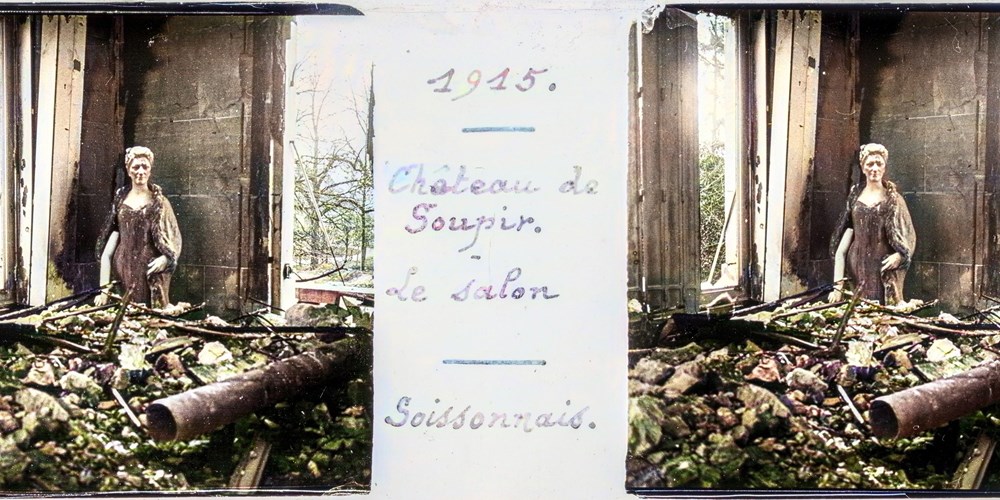 1915.
Château de
Soupir.
-
Le salon
Soissonnais.